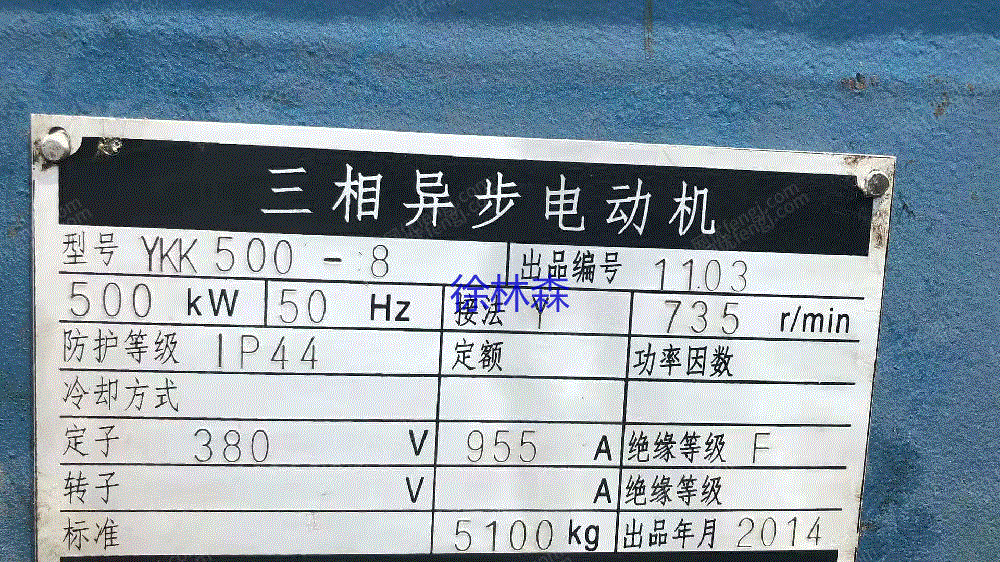 三相异步电动机
型号 YKK 500 - 8 出品编号 1103
500 kW 50 Hz 接法 Y 735 r/min
徐林森
防护等级 IP44 定额 功率因数
冷却方式
定子 380 V 955 A 绝缘等级 F
转子 V A 绝缘等级
标准 5100 kg 出品年月 2014